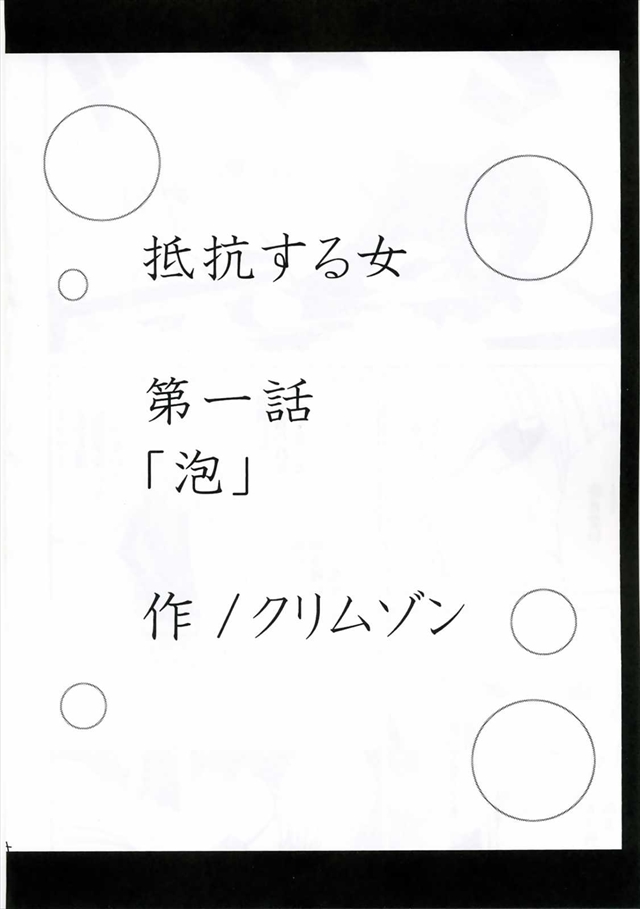 抵抗する女
第一話
「泡」
作／クリムゾン